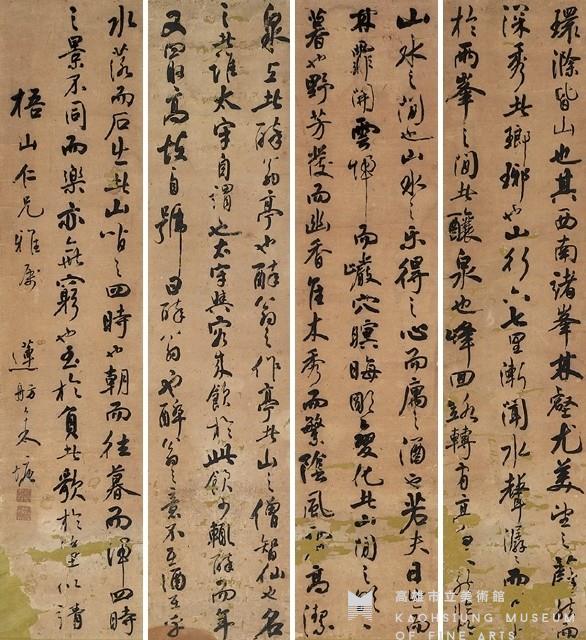 環滁皆山也其西南諸峯林壑尤美望之蔚然而
深秀者瑯琊也山行六七里漸聞水聲潺潺而
於兩峯之間者釀泉也峰回路轉有亭翼然臨
山水之間也山水之樂得之心而寓之酒也若夫日出而
林霏開雲歸而巖穴暝晦明變化者山間之朝
暮也野芳發而幽香佳木秀而繁陰風霜高潔
泉上者醉翁亭也醉翁之作亭者山之僧智仙也名
之者誰太守自謂也太守與客來飲於此飲少輒醉而年
又最高故自號曰醉翁也醉翁之意不在酒在乎
水落而石出者山間之四時也朝而往暮而歸四時
之景不同而樂亦無窮也至於負者歌於
梧山仁兄雅屬 蓮舫
高雄市立美術館
KAOHSIUNG MUSEUM
OF FINE ARTS